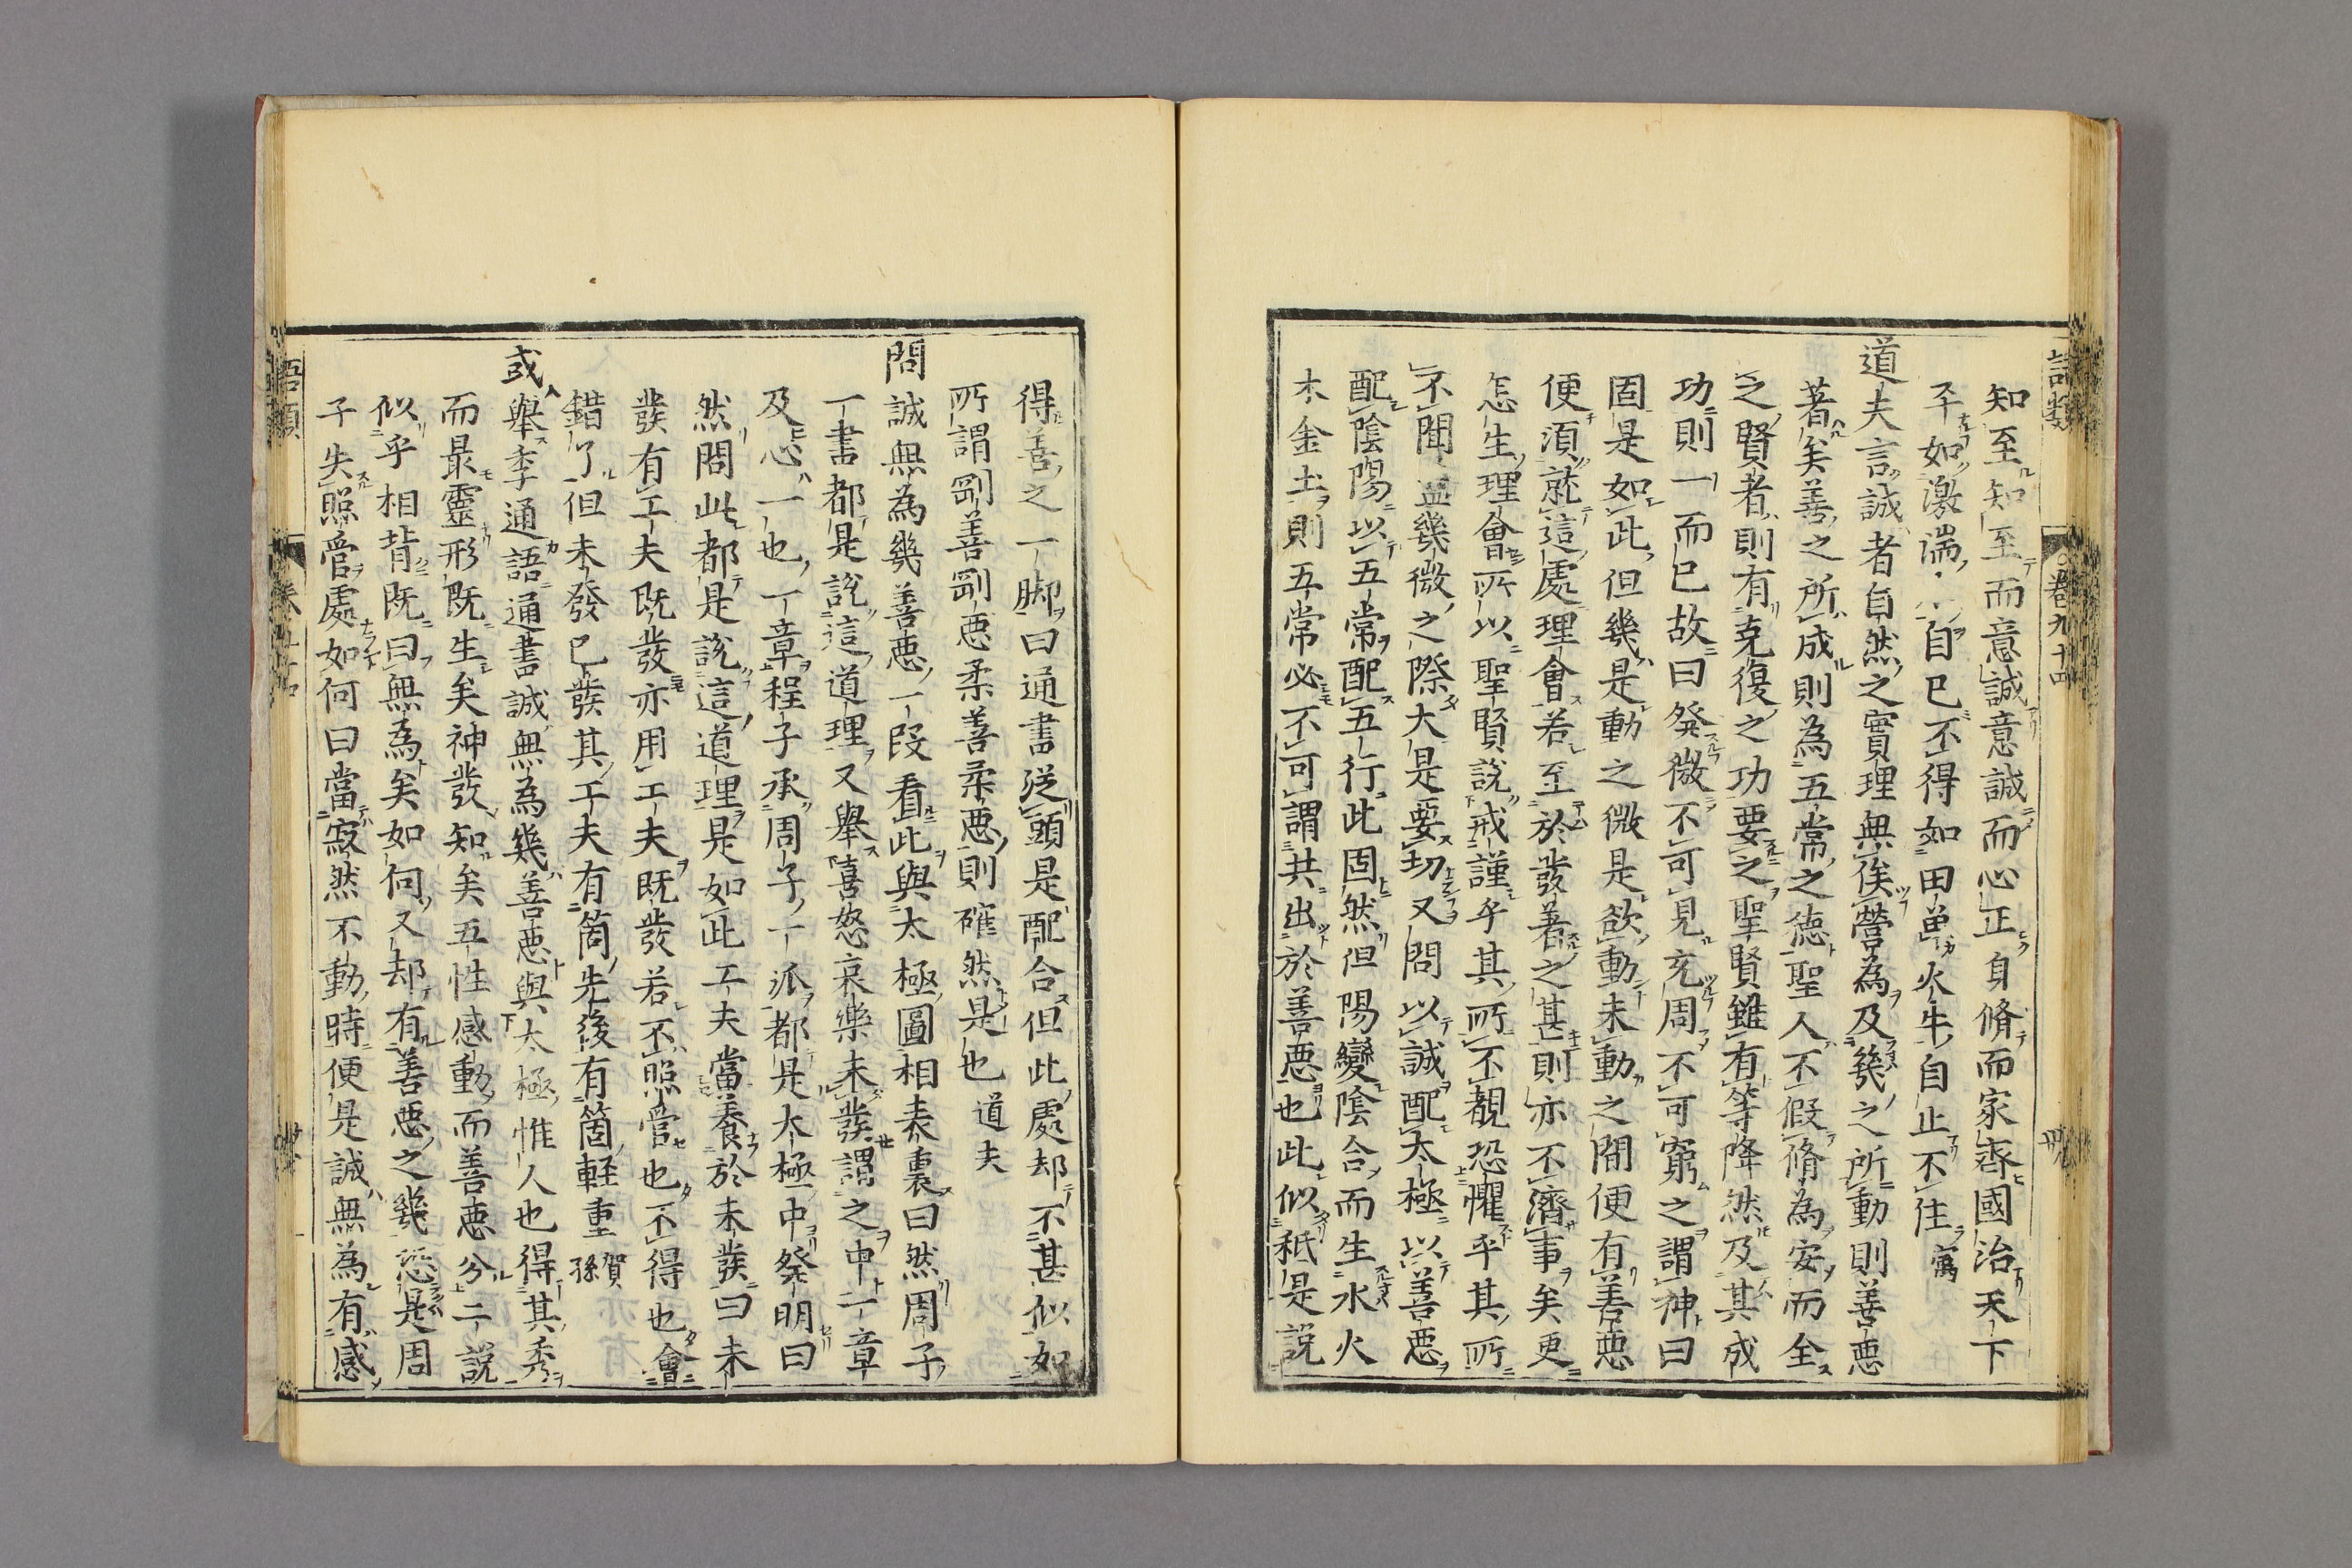 語類 卷九十四
知至知至而意誠意誠而心正自脩而家齊國治天下
平如激湍自已不得如田單火牛自止不住㝢
道夫言誠者自然之實理無俟營為及幾之所動則善悪
著矣善之所成則為五常之德聖人不假脩為安而全
之賢者則有克復之功要之聖賢雖有等降然及其成
功則一而已故曰發微不可見充周不可窮之謂神曰
固是如此但幾是動之微是欲動未動之間便有善悪
便湏就這處理會若至於發著之甚則亦不濟事矣更
怎生理會所以聖賢說戒謹乎其所不覩恐懼乎其所
不聞蓋幾微之際大是要切又問以誠配太極以善悪
配陰陽以五常配五行此固然但陽變陰合而生水火
木金土則五常必不可謂共出於善悪也此似秖是說
得善之一脚曰通書從頭是配合但此處却不甚似如
所謂剛善剛悪柔善柔悪則確然是也道夫
問誠無為幾善悪一段看此與太極圖相表裏曰然周子
一書都是說這道理又舉喜怒哀樂未發謂之中一章
及心一也一章程子承周子一派都是太極中發明曰
然問此都是說這道理是如此工夫當養於未發曰未
發有工夫既發亦用工夫既發若不照管也不得也會
錯了但未發已發其工夫有箇先後有箇軽重賀孫
或舉季通語通書誠無為幾善悪與太極惟人也得其秀
而最靈形既生矣神發知矣五性感動而善悪分二說
似乎相背既曰無為矣如何又却有善悪之幾恐是周
子失照管處如何曰當寂然不動時便是誠無為有感
語類